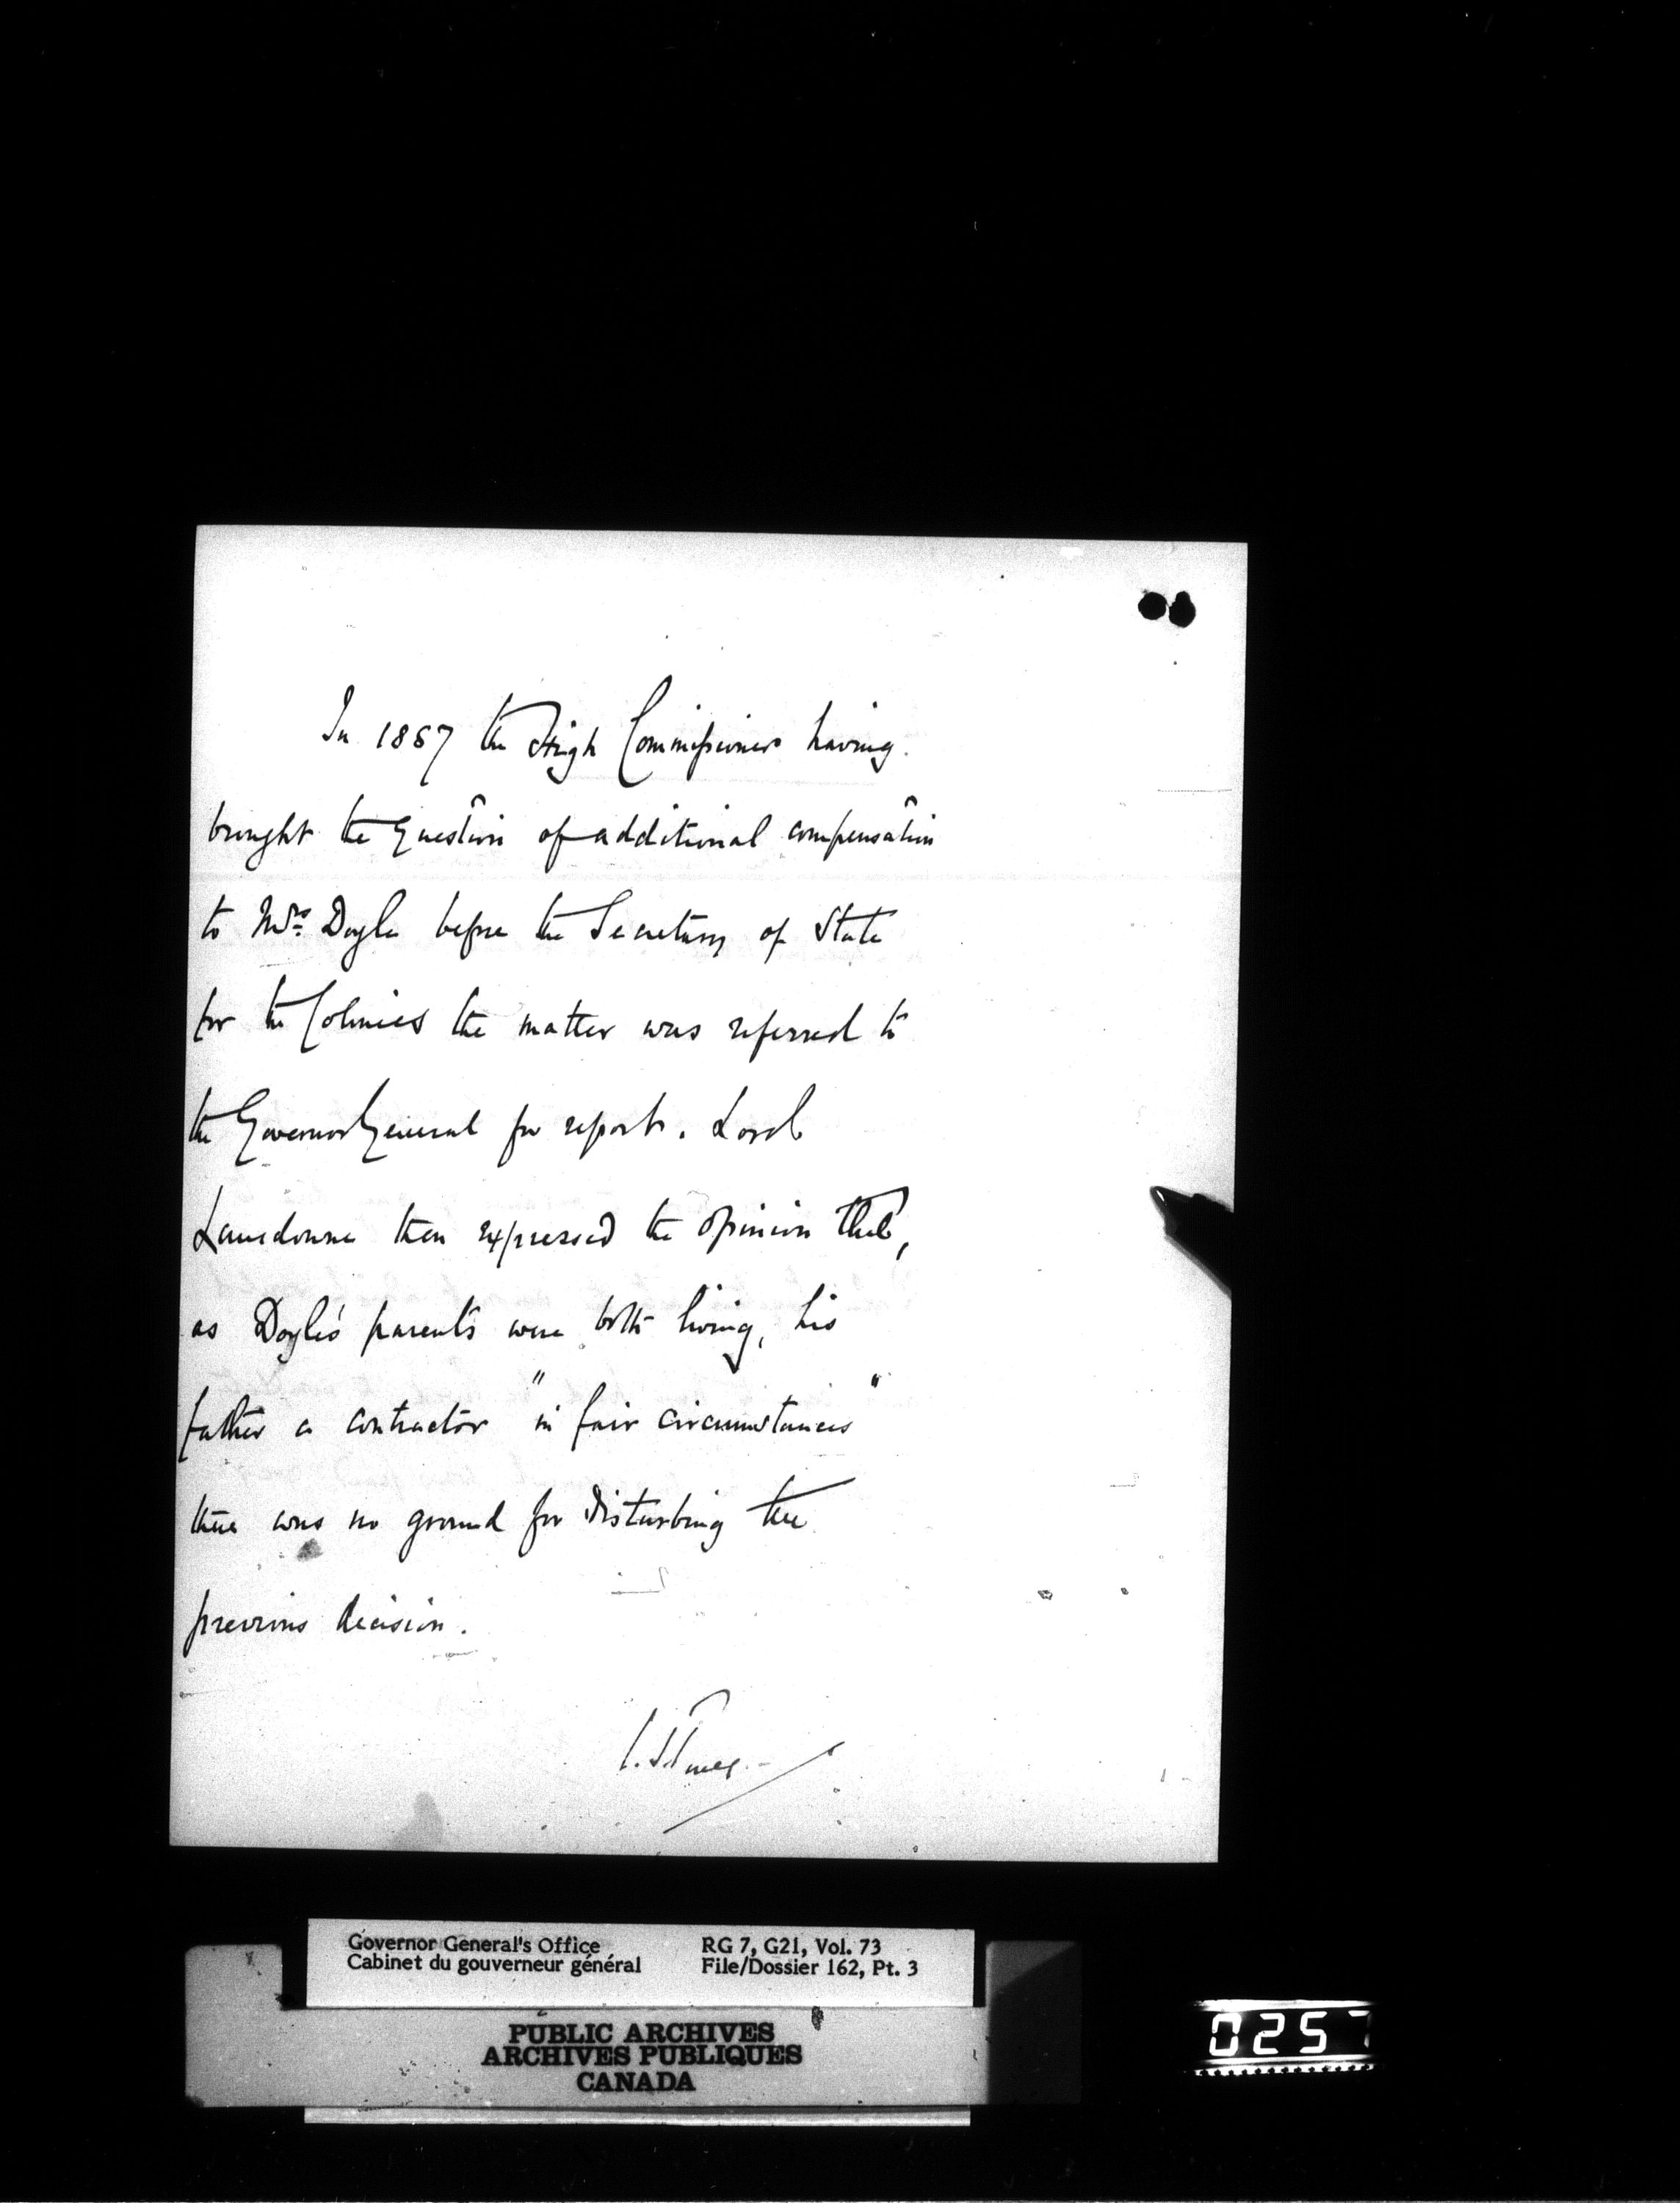 In 1887 the High Commissioner having
brought the question of additional compensation
to Mrs. Doyle before the Secretary of State
for the Colonies the matter was referred to
the Governor General for report. Lord
Lansdowne then expressed the opinion that,
as Doyle's parents were both living, his
father a contractor "in fair circumstances"
there was no ground for disturbing the
previous decision.
Governor General's Office
Cabinet du gouverneur général
RG 7, G21, Vol. 73
File/Dossier 162, Pt. 3
PUBLIC ARCHIVES
ARCHIVES PUBLIQUES
CANADA
0257